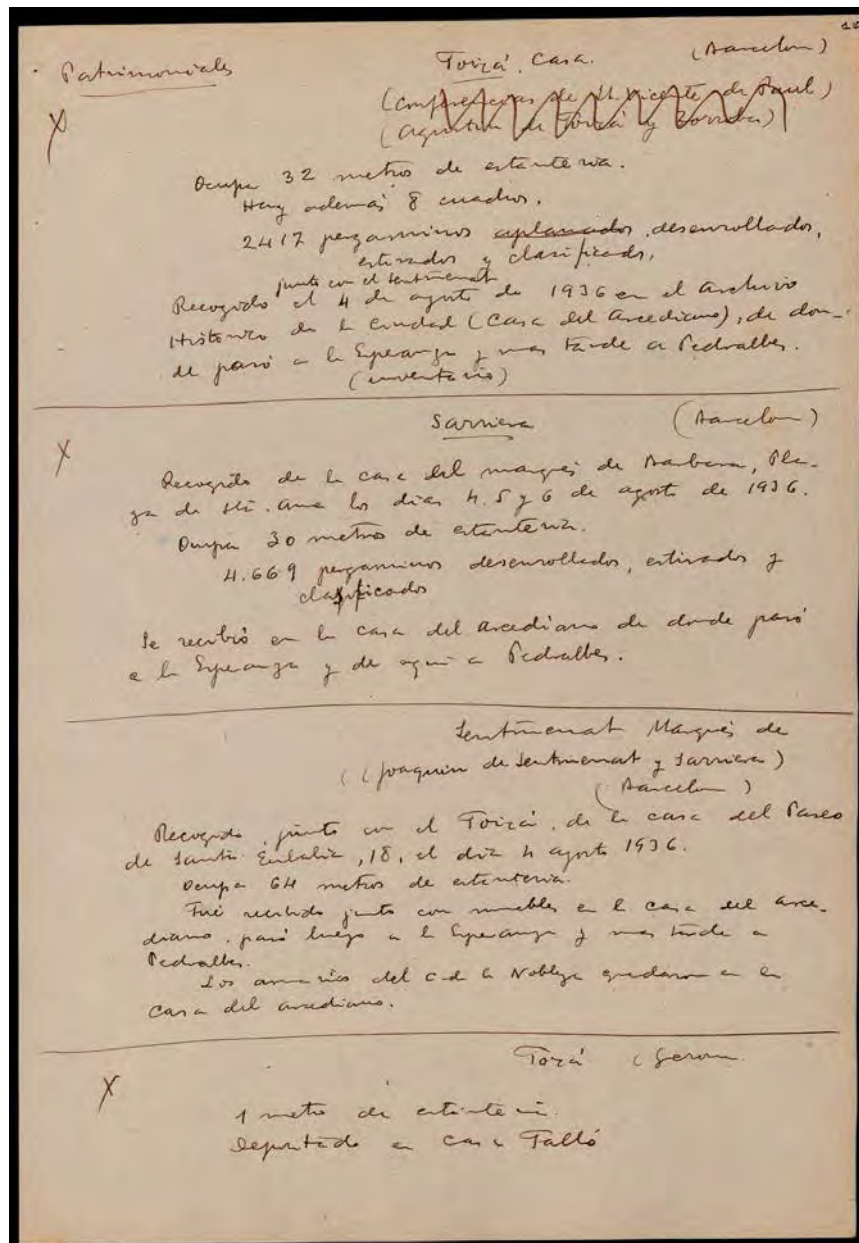 Patrimoniales
Foixá, Casa. (Barcelona)
(Conferencias de St. Vicente de Paul)
(Agustín de Foixá y Borrás)
Ocupa 32 metros de estanteria.
Hay además 8 cuadros.
2417 pergaminos aplanados, desenrollados,
estirados y clasificados,
junto con el Sentmenat
Recogido el 4 de agosto de 1936 en el Archivo
Histórico de la Ciudad (Casa del Arcediano), de don-
de pasó a la Esperanza y mas tarde a Pedralbes.
(inventario)
Sarriera (Barcelona)
Recogido de la casa del marqués de Barbara, Pla-
za de Sta. Ana los dias 4. 5 y 6 de agosto de 1936.
Ocupa 30 metros de estanteria.
4.669 pergaminos desenrollados, estirados y
clasificados
Se recibió en la casa del Arcediano de donde pasó
a la Esperanza y de aquí a Pedralbes.
Sentmenat Marqués de
(Joaquin de Sentmenat y Sarriera)
(Barcelona)
Recogido, junto con el Foixá, de la casa del Paseo
de Santa Eulalia, 18, el dia 4 agosto 1936.
Ocupa 64 metros de estanteria.
Fué recibido junto con muebles en la casa del Arce-
diano, pasó luego a la Esperanza y mas tarde a
Pedralbes.
Los armarios del C. de la Nobleza quedaron en la
Casa del Arcediano.
Foxá (Gerona
1 metro de estanteria.
Depositado en casa Falló